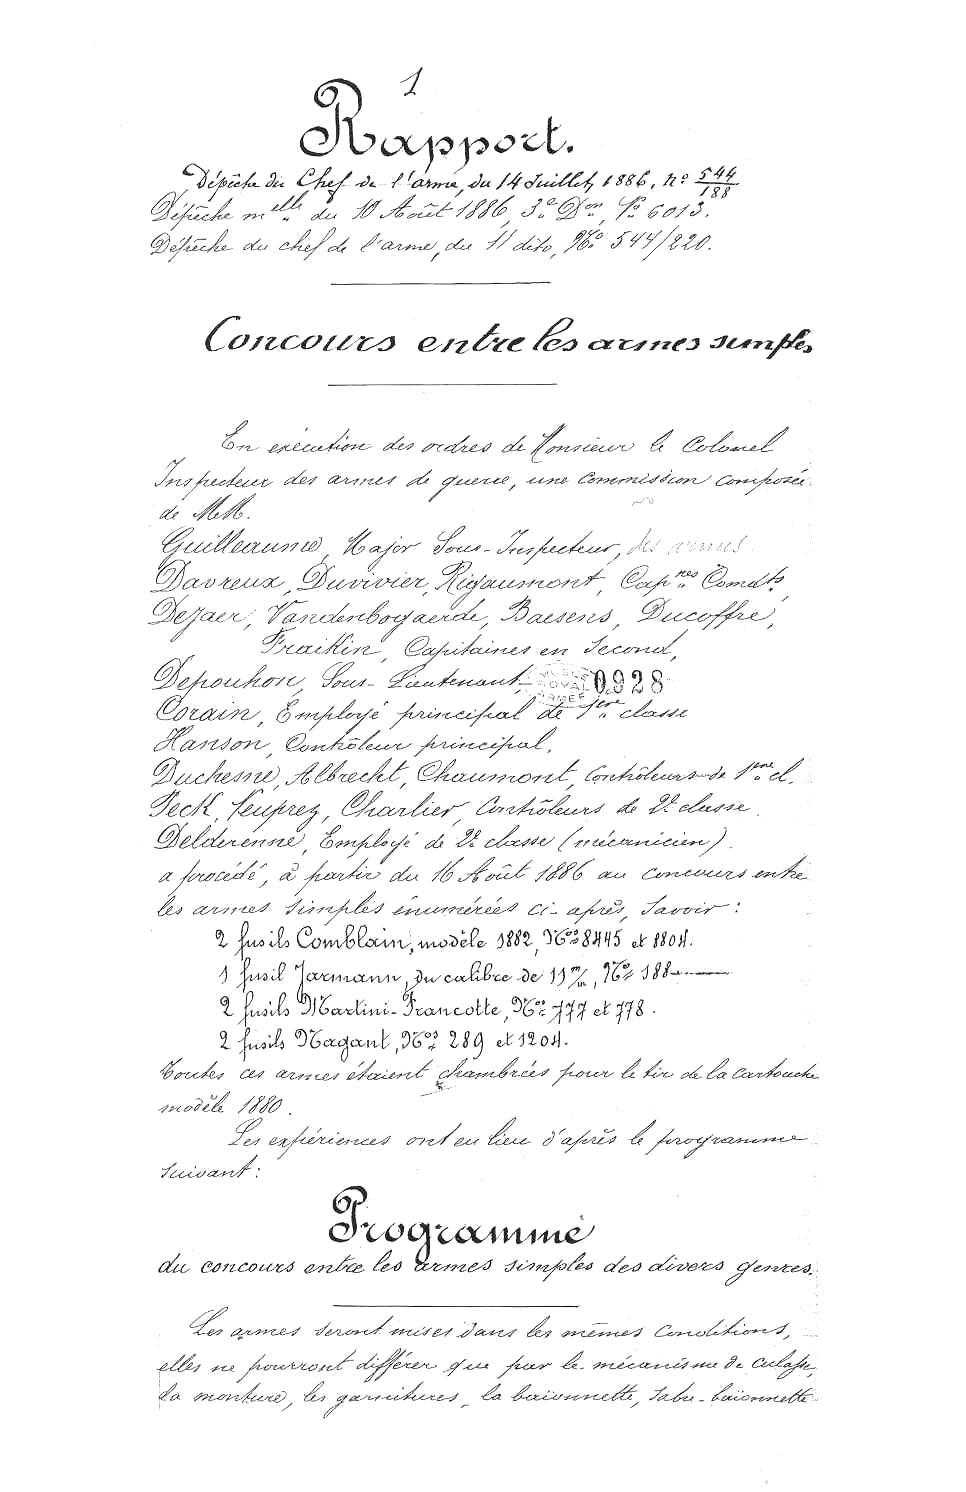 1
Rapport.
Dépêche du Chef de l'arme, du 14 Juillet, 1886, n° 544/188
Dépêche m.elle du 10 Août 1886, 3e Don, No 6013.
Dépêche du chef de l'arme, du 11 dito, No 544/220.
Concours entre les armes simples
En exécution des ordres de Monsieur le Colonel
Inspecteur des armes de guerre, une commission composée
de M.M.
Guilleaume, Major Sous-Inspecteur, des armes
Davreux, Duvivier, Rigaumont, Capnes Comdts,
Dejaer, Vandenbogaerde, Baesens, Ducoffre,
Fraikin, Capitaines en Second,
Depouhon, Sous-Lieutenant,
MUSÉE ROYAL ARMÉE 0928
Corain, Employé principal de 1ère classe
Hanson, Contrôleur principal,
Duchesne, Albrecht, Chaumont, Contrôleurs de 1ère cl.
Peck, Neuprez, Charlier, Contrôleurs de 2e classe
Delderenne, Employé de 2e classe (mécanicien).
a procédé, à partir du 16 Août 1886 au concours entre
les armes simples énumérées ci-après, savoir :
2 fusils Comblain, modèle 1882, Nos 8445 et 8804.
1 fusil Jarmann, du calibre de 11 m/m, No 188
2 fusils Martini-Francotte, Nos 777 et 778.
2 fusils Nagant, Nos 289 et 1204.
Toutes ces armes étaient chambrées pour le tir de la cartouche
modèle 1880.
Les expériences ont eu lieu d'après le programme
suivant :
Programme
du concours entre les armes simples des divers genres.
Les armes seront mises dans les mêmes conditions,
elles ne pourront différer que par le mécanisme de culasse,
la monture, les garnitures, la baïonnette, sabre-baïonnette